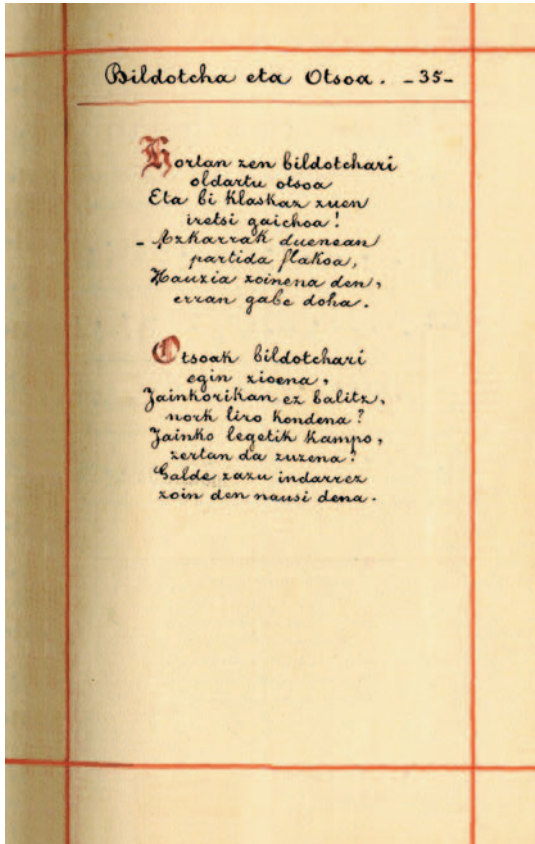 Bildotcha eta Otsoa. -35-
Hortan zen bildotchari
oldartu otsoa
Eta bi klaskaz zuen
iretsi gaichoa!
- Azkarrak duenean
partida flakoa,
Hauzia zoinena den,
erran gabe doha.
Otsoak bildotchari
egin zioena,
Jainkorikan ez balitz,
nork liro kondena?
Jainko legetik kampo,
zertan da zuzena?
Galde zazu indarrez
zoin den nausi dena.